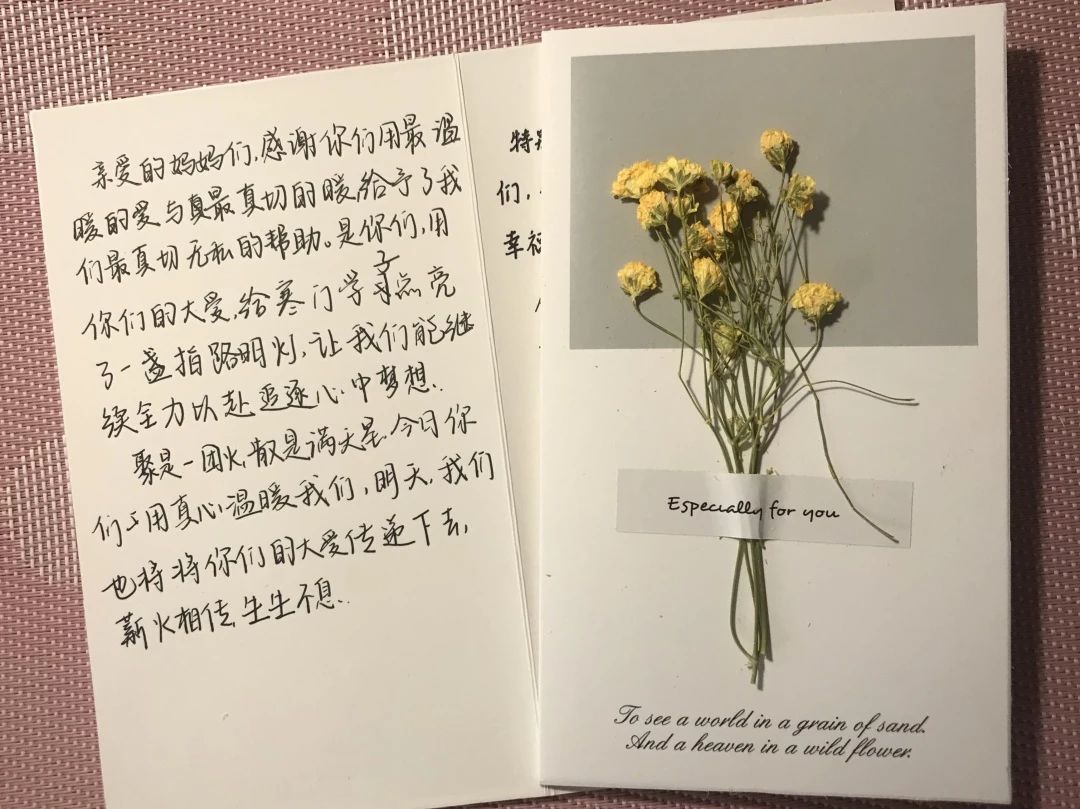 亲爱的妈妈们，感谢你们用最温
暖的爱与真最真切的暖给予了我
们最真切无私的帮助。是你们，用
你们的大爱，给寒门学子点亮
了一盏指路明灯，让我们能继
续全力以赴追逐心中梦想。
聚是一团火，散是满天星，今日你
们用真心温暖我们，明天，我们
也将将你们的大爱传递下去，
薪火相传，生生不息。
特别
们，
幸福
Especially for you
To see a world in a grain of sand.
And a heaven in a wild flower.